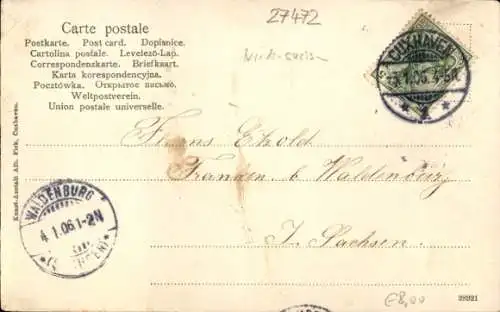 27472
Carte postale
Postkarte. Post card. Dopisnice.
Cartolina postale. Levelező-Lap.
Correspondenzkarte. Briefkaart.
Karta korespondencyjna.
Pocztówka. Открытое письмо.
Weltpostverein.
Union postale universelle.
CUXHAVEN
1.06.
Franken b Waldenburg
I. Sachsen
WALDENBURG
4 1.06.1-2N
(SACHSEN)
Kunst-Anstalt Alb. Cuxhaven.
€8,00
28921